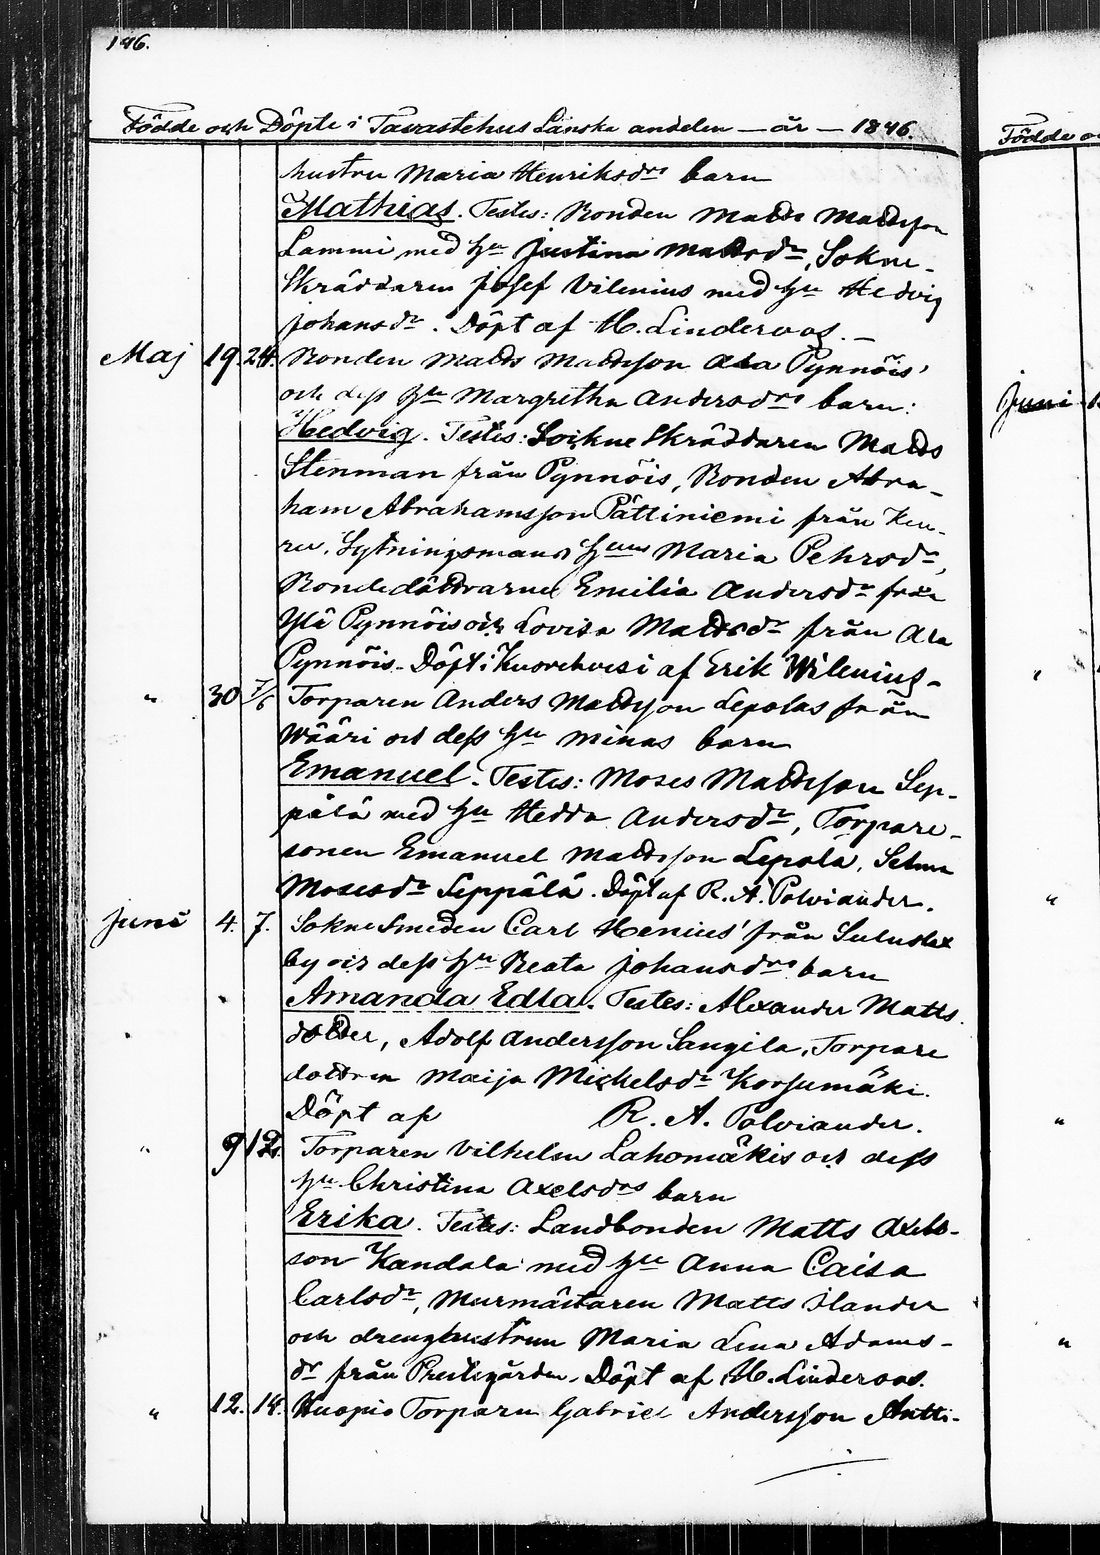 196.
Födde och Döpte i Tavastehus Länska andelen — år — 1846.
Födde o
hustru Maria Henriksdrs barn
Mathias. Testes: Bonden Matts Mattsson
Lammi med hu Justina Mattsdr, Sokne-
Skräddaren Josef Vilenius med hu Hedvig
Johansdr. Döpt af H. Linderoos. —
Maj 19. 24. Bonden Matts Mattsson Ala Pynnöis'
och dess hu Margretha Andersdrs barn:
Juni
Hedvig. Testes: Sockne Skräddaren Matts
Stenman från Pynnöis, Bonden Abra-
ham Abrahamsson Pättiniemi från Keu-
ru, Sytningsmans hus Maria Pehrsdr,
Bondedöttrarne Emilia Andersdr från
Ylä Pynnöis och Lovisa Mattsdr från Ala
Pynnöis. Döpt i Kuorehvesi af Erik Wilenius -
" 30 7/6 Torparen Anders Mattsson Lepolas från
Wääri och dess hu Minas barn
Emanuel. Testes: Moses Mattsson Sep-
pälä med hu Hedda Andersdr, Torpare-
sonen Emanuel Mattsson Lepola, Selma
Mosesdr Seppälä. Döpt af R. A. Polviander.
Juni 4. 7. Sokne Smeden Carl Henius' från
by och dess hu Beata Johansdrs barn
Amanda Edla. Testes: Alexander Matts
dotter, Adolf Andersson Sangila, Torpare
dottren Maija Michelsdr Korsumäki.
Döpt af R. A. Polviander.
" 9 12. Torparen Vilhelm Lahomäkis och dess
hu Christina Axelsdrs barn
Erika. Testes: Landbonden Matts Axels-
son Kandala med hu Anna Caisa
Carlsdr, Murmästaren Matts Ilander
och drenghustrun Maria Lena Adams-
dr från Prestgården. Döpt af H. Linderoos.
" 12. 14. Kuopio Torparen Gabriel Andersson Antti-